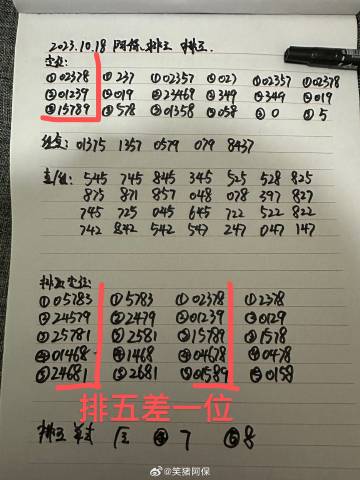 2023.10.18 阿保、排三 排五.
定位:
①02378 ①237 ①02357 ①027 ①02357 ①02378
②01239 ②019 ②23469 ②349 ②349 ②019
③15789 ③578 ③01358 ③058 ③0 ③5
组复: 01375 1357 0579 079 8437
直/组: 545 745 845 345 525 528 825
875 871 857 048 078 397 827
745 725 045 645 722 522 822
742 842 542 547 247 047 147
排五定位:
①05783 ①5783 ①02378 ①2378
②24579 ②2479 ②01239 ②0129
③25781 ③2581 ③15789 ③1578
④01468 ④1468 ④04678 ④0478
⑤24681 ⑤2681 ⑤01589 ⑤0158
排五差一位
排五 单式 ④7 ⑤8
@笑猪阿保